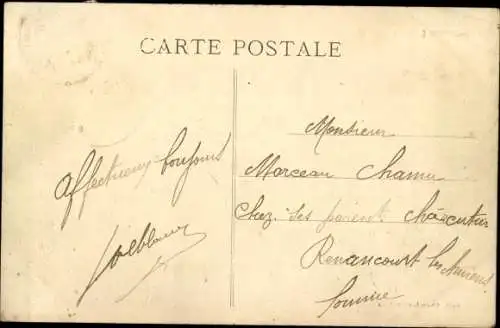 CARTE POSTALE
Affectueux bonjours
Leblanc
Monsieur
Marceau Chamu
Chez ses parents Charcutier
Renancourt les Amiens
Somme